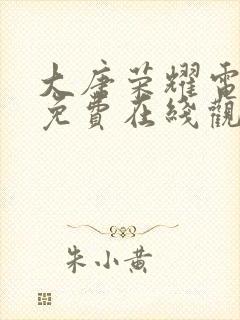 大唐荣耀電
免費在綫觀
朱小黄